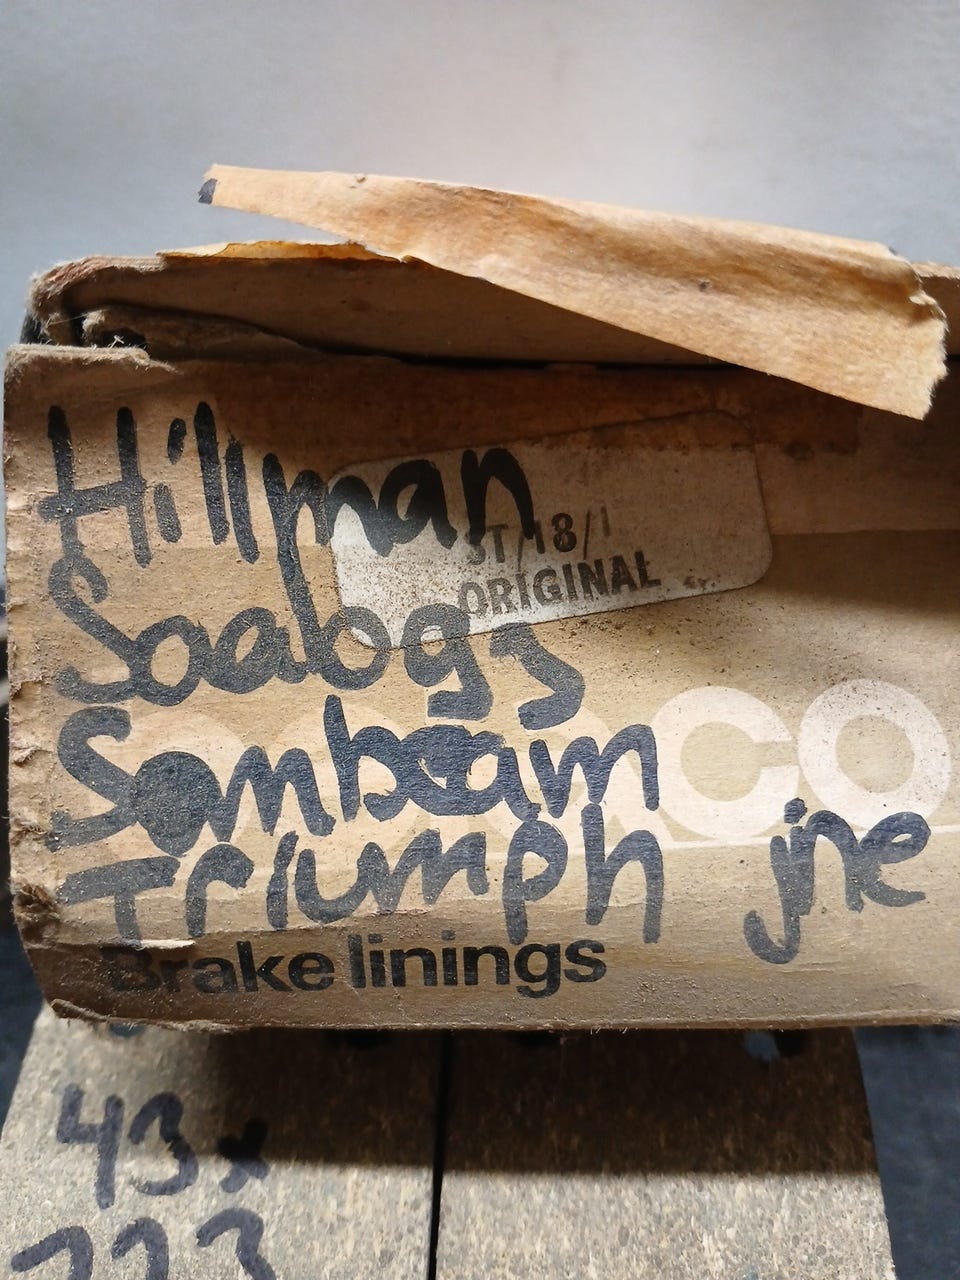 Hillman
ST/18/1
ORIGINAL
Saab 93
Sonbeam
CO
Triumph jne
Brake linings
43x
223